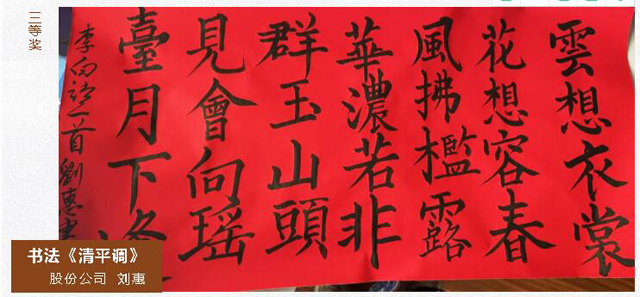 三等奖
雲想衣裳
花想容春
風拂檻露
華濃若非
群玉山頭
見會向瑶
臺月下
李白詩一首 劉惠書
书法《清平调》
股份公司 刘惠